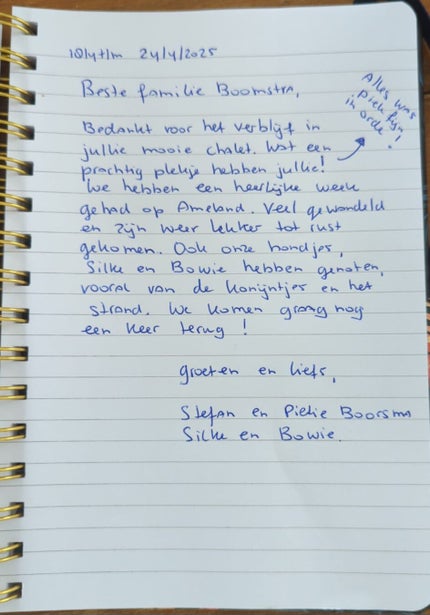 18/4 t/m 24/4/2025
Beste familie Boomstra,
Alles was
piekfijn
in orde!
Bedankt voor het verblijf in
jullie mooie chalet. Wat een
prachtig plekje hebben jullie!
We hebben een heerlijke week
gehad op Ameland. Veel gewandeld
en zijn weer lekker tot rust
gekomen. Ook onze hondjes,
Silke en Bowie hebben genoten,
vooral van de konijntjes en het
strand. We komen graag nog
een keer terug!
groeten en liefs,
Stefan en Pietie Boorsma
Silke en Bowie.